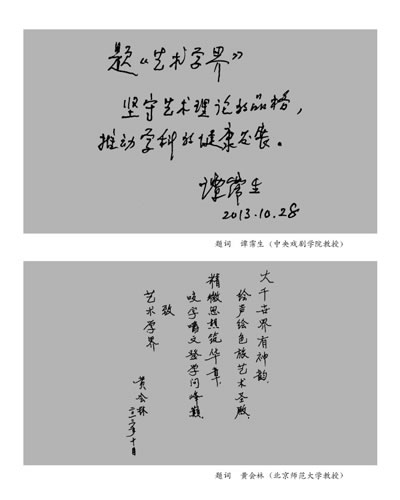 题《艺术学界》
坚守艺术理论的品格，
推动学科的健康发展。
谭霈生
2013.10.28
题词 谭霈生（中央戏剧学院教授）
大千世界有神韵，
绘声绘色艺术圣殿，
精微思想筑华章，
咬字嚼文登学问峰巅。
致
艺术学界
黄会林
二〇一三年十月
题词 黄会林（北京师范大学教授）